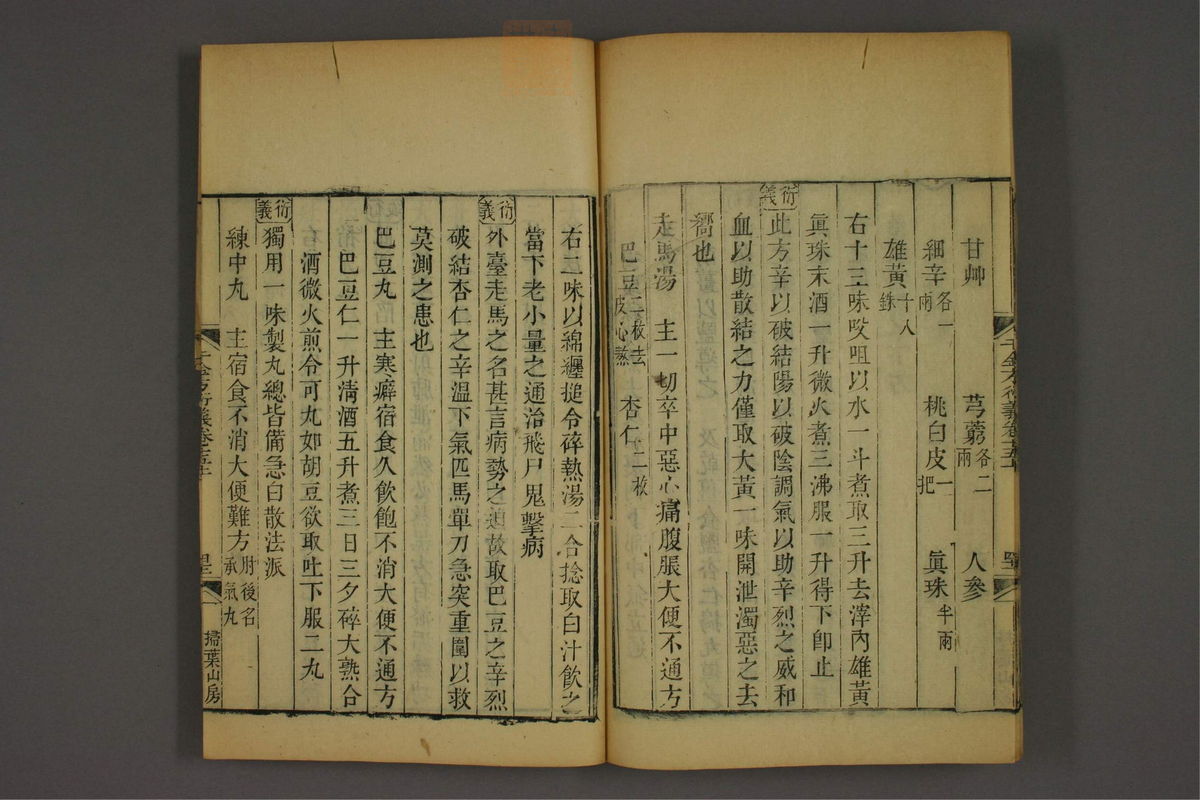 甘艸 芎藭各二兩 人參
細辛各一兩 桃白皮一把 眞珠半兩
雄黃十八銖
右十三味㕮咀以水一斗煮取三升去滓內雄黃
眞珠末酒一升微火煮三沸服一升得下卽止
衍義 此方辛以破結陽以破陰調氣以助辛烈之威和
血以助散結之力僅取大黃一味開泄濁惡之去
嚮也
走馬湯 主一切卒中惡心痛腹脹大便不通方
巴豆二枚去皮心熬 杏仁二枚
右二味以綿纏搥令碎熱湯二合捻取白汁飲之
當下老小量之通治飛尸鬼擊病
衍義 外臺走馬之名甚言病勢之迫故取巴豆之辛烈
破結杏仁之辛溫下氣匹馬單刀急突重圍以救
莫測之患也
巴豆丸 主寒癖宿食久飲飽不消大便不通方
巴豆仁一升清酒五升煮三日三夕碎大熟合
酒微火煎令可丸如胡豆欲取吐下服二丸
衍義 獨用一味製丸總皆備急白散法派
練中丸 主宿食不消大便難方肘後名承氣丸
掃葉山房